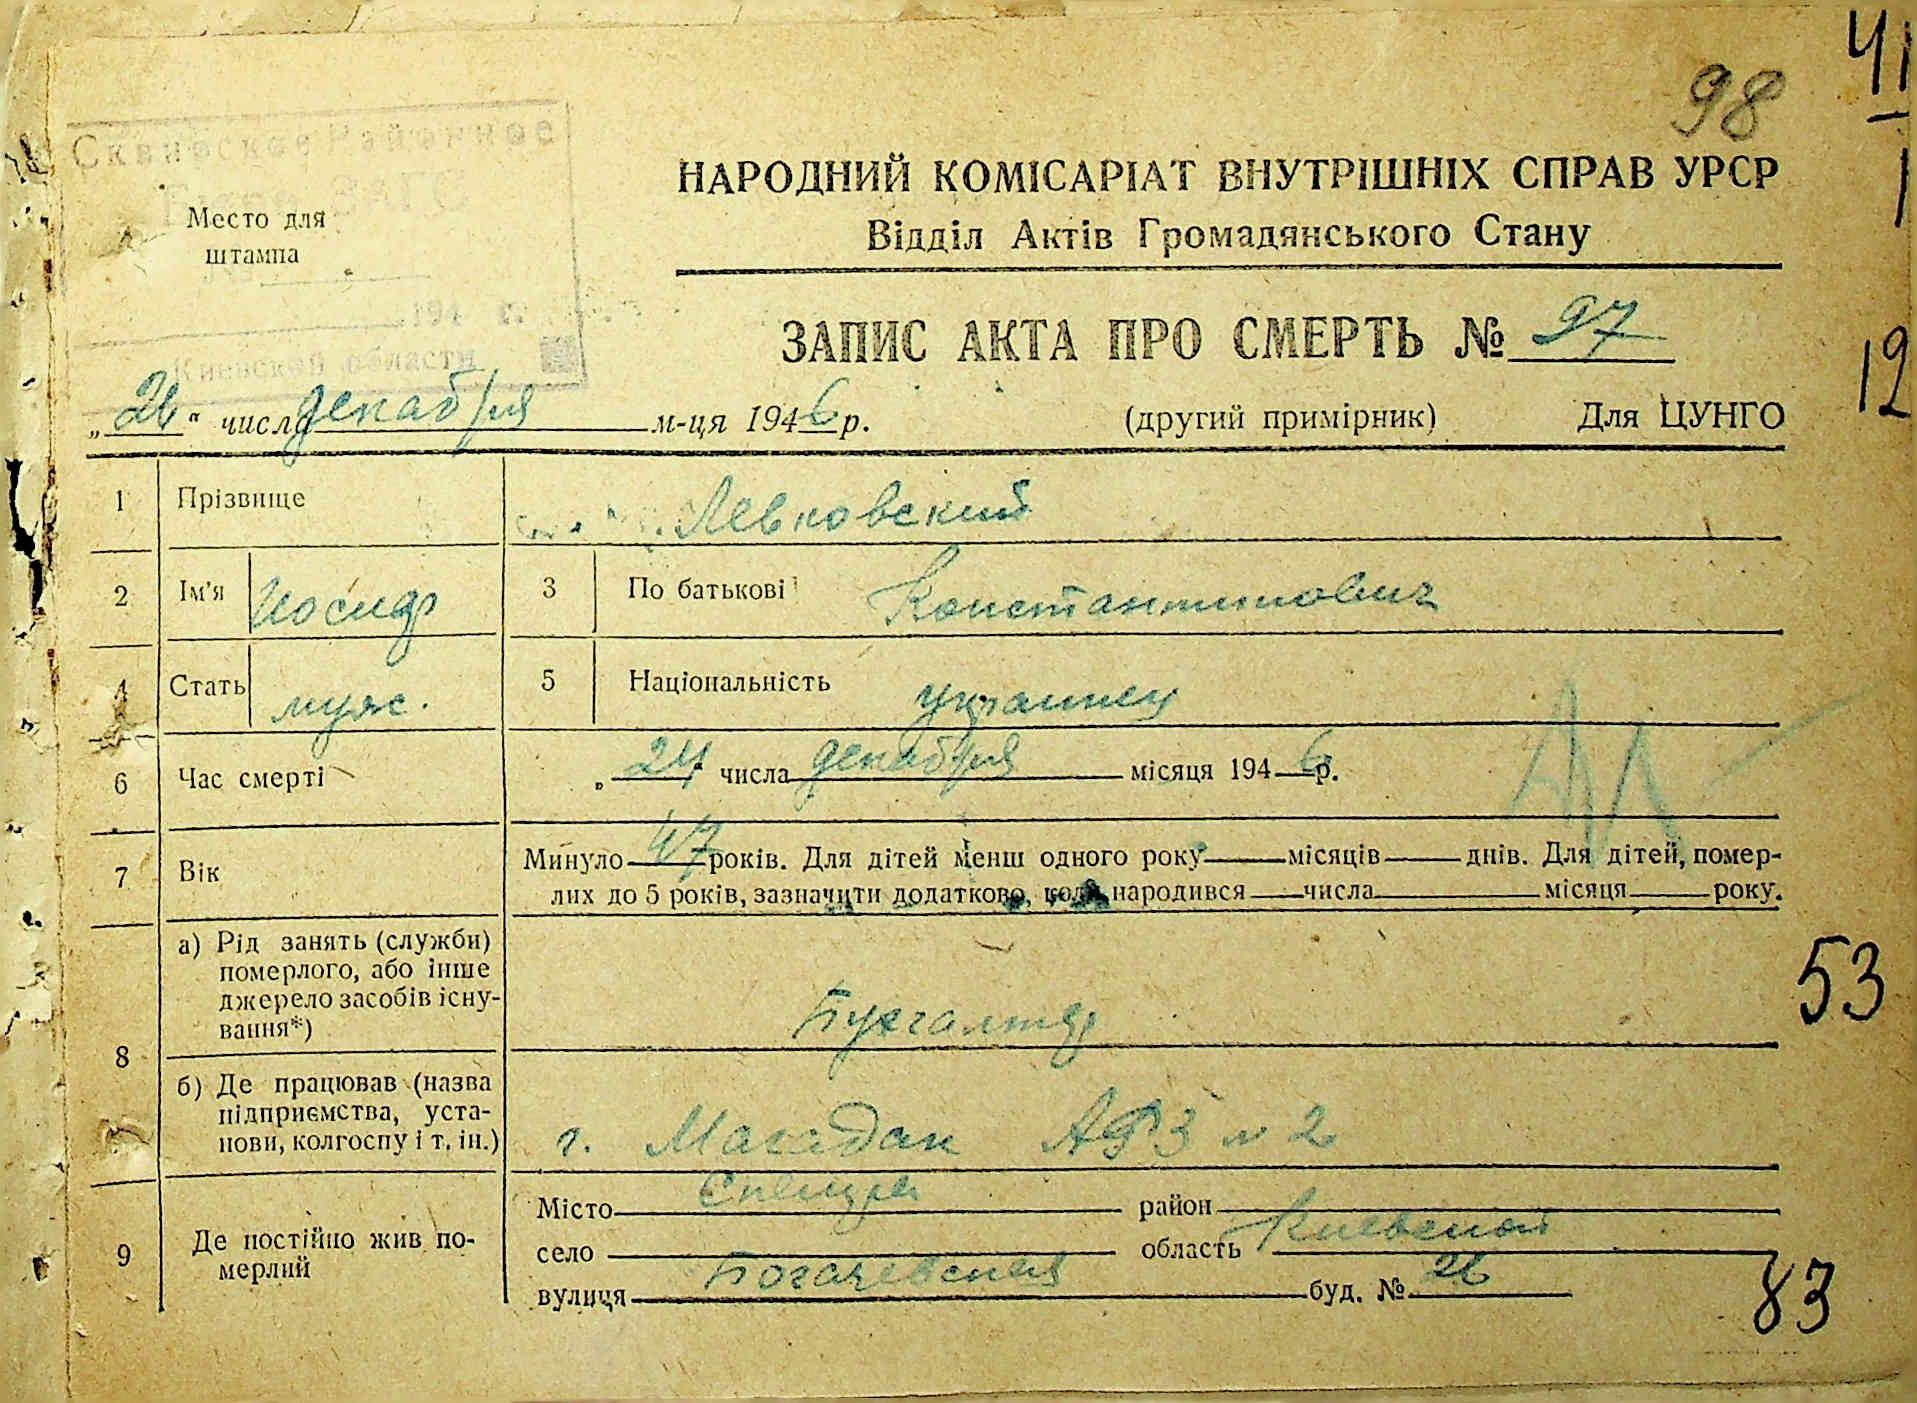 98
41
1
Сквирское Районное
Место для
штампа
194 г.
Киевской области
НАРОДНИЙ КОМІСАРІАТ ВНУТРІШНІХ СПРАВ УРСР
Відділ Актів Громадянського Стану
ЗАПИС АКТА ПРО СМЕРТЬ № 97
12
„26“ числа декабря м-ця 1946 р. (другий примірник) Для ЦУНГО
1 Прізвище Левковский
2 Ім’я Иосиф 3 По батькові Константинович
4 Стать муж. 5 Національність украинец
6 Час смерті „24“ числа декабря місяця 1946 р.
7 Вік Минуло 47 років. Для дітей менш одного року місяців днів. Для дітей, помер-
лих до 5 років, зазначити додатково, коли народився числа місяця року.
53
8 а) Рід занять (служби)
померлого, або інше
джерело засобів існу-
вання*)
Бухгалтер
б) Де працював (назва
підприємства, уста-
нови, колгоспу і т. ін.)
г. Магадан АРЗ № 2
9 Де постійно жив по-
мерлий
Місто Сквира район
село область Киевской
вулиця Богачевская буд. № 26
83